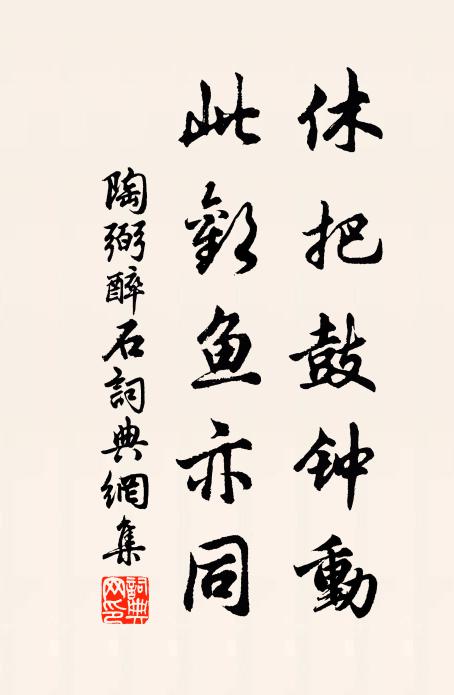 休把鼓钟動
此歡鱼亦同
陶弼醉石詞典網集
詞典網印